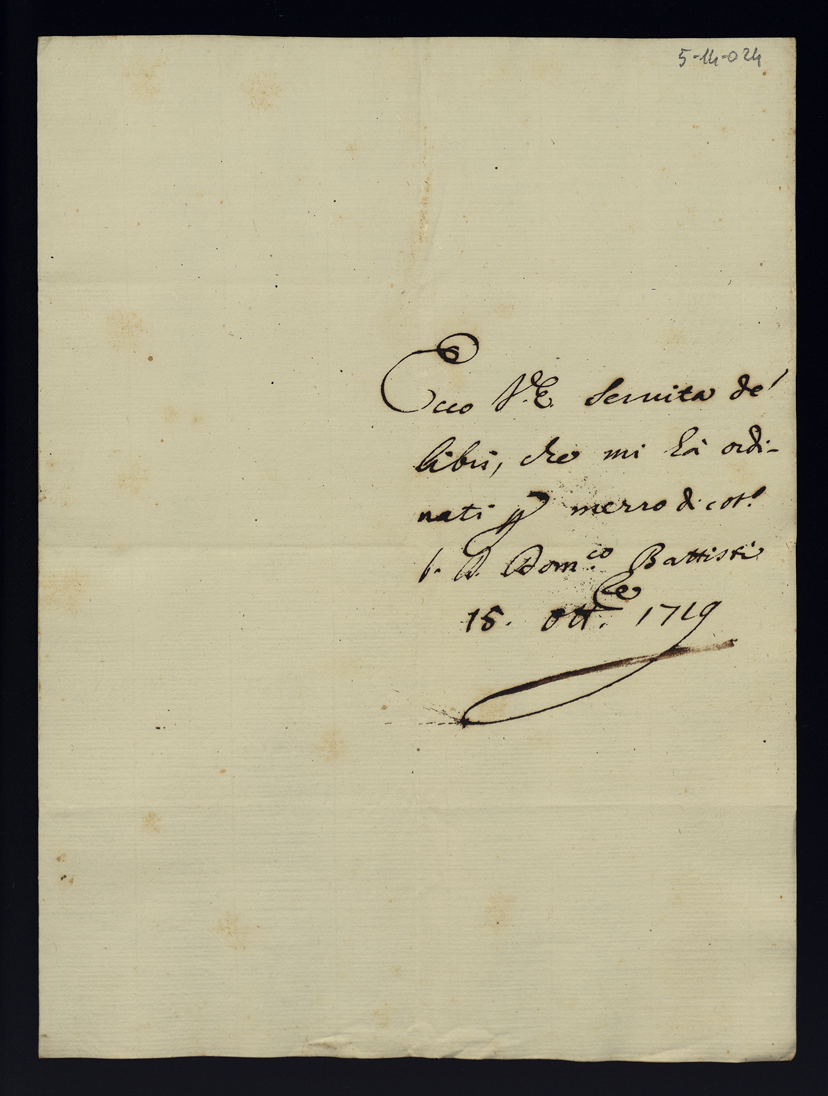 5-14-024
Ecco V.E. Seruita de'
libri, che mi hà ordi-
nati p merro di cot.
D. Dom.co Battisti
18. Ott.e 1719